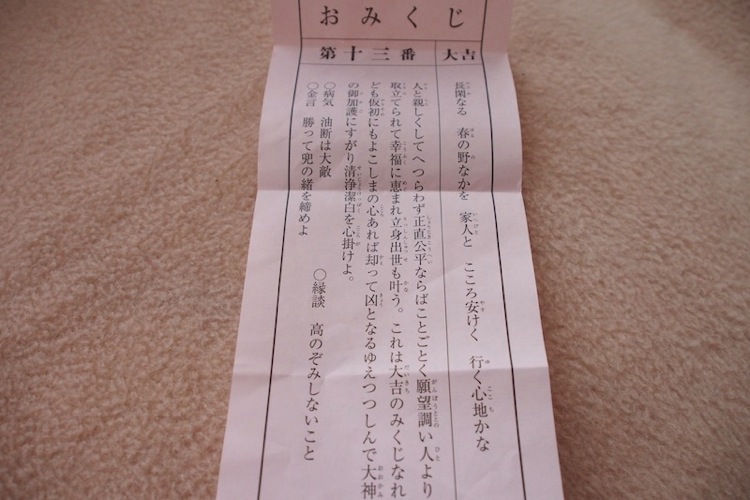 おみくじ
第十三番
大吉
長閑なる 春の野なかを 家人と こころ安けく 行く心地かな
人と親しくしてへつらわず正直公平ならばことごとく願望調い人より
取立てられて幸福に恵まれ立身出世も叶う。これは大吉のみくじなれ
ども仮初にもよこしまの心あれば却って凶となるゆえつつしんで大神
の御加護にすがり清浄潔白を心掛けよ。
○病気 油断は大敵
○縁談 高のぞみしないこと
○金言 勝って兜の緒を締めよ